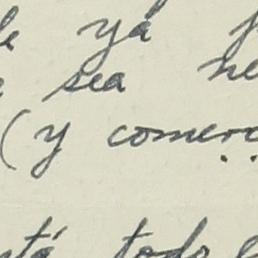 ya
sea
(y comerc
tá todo